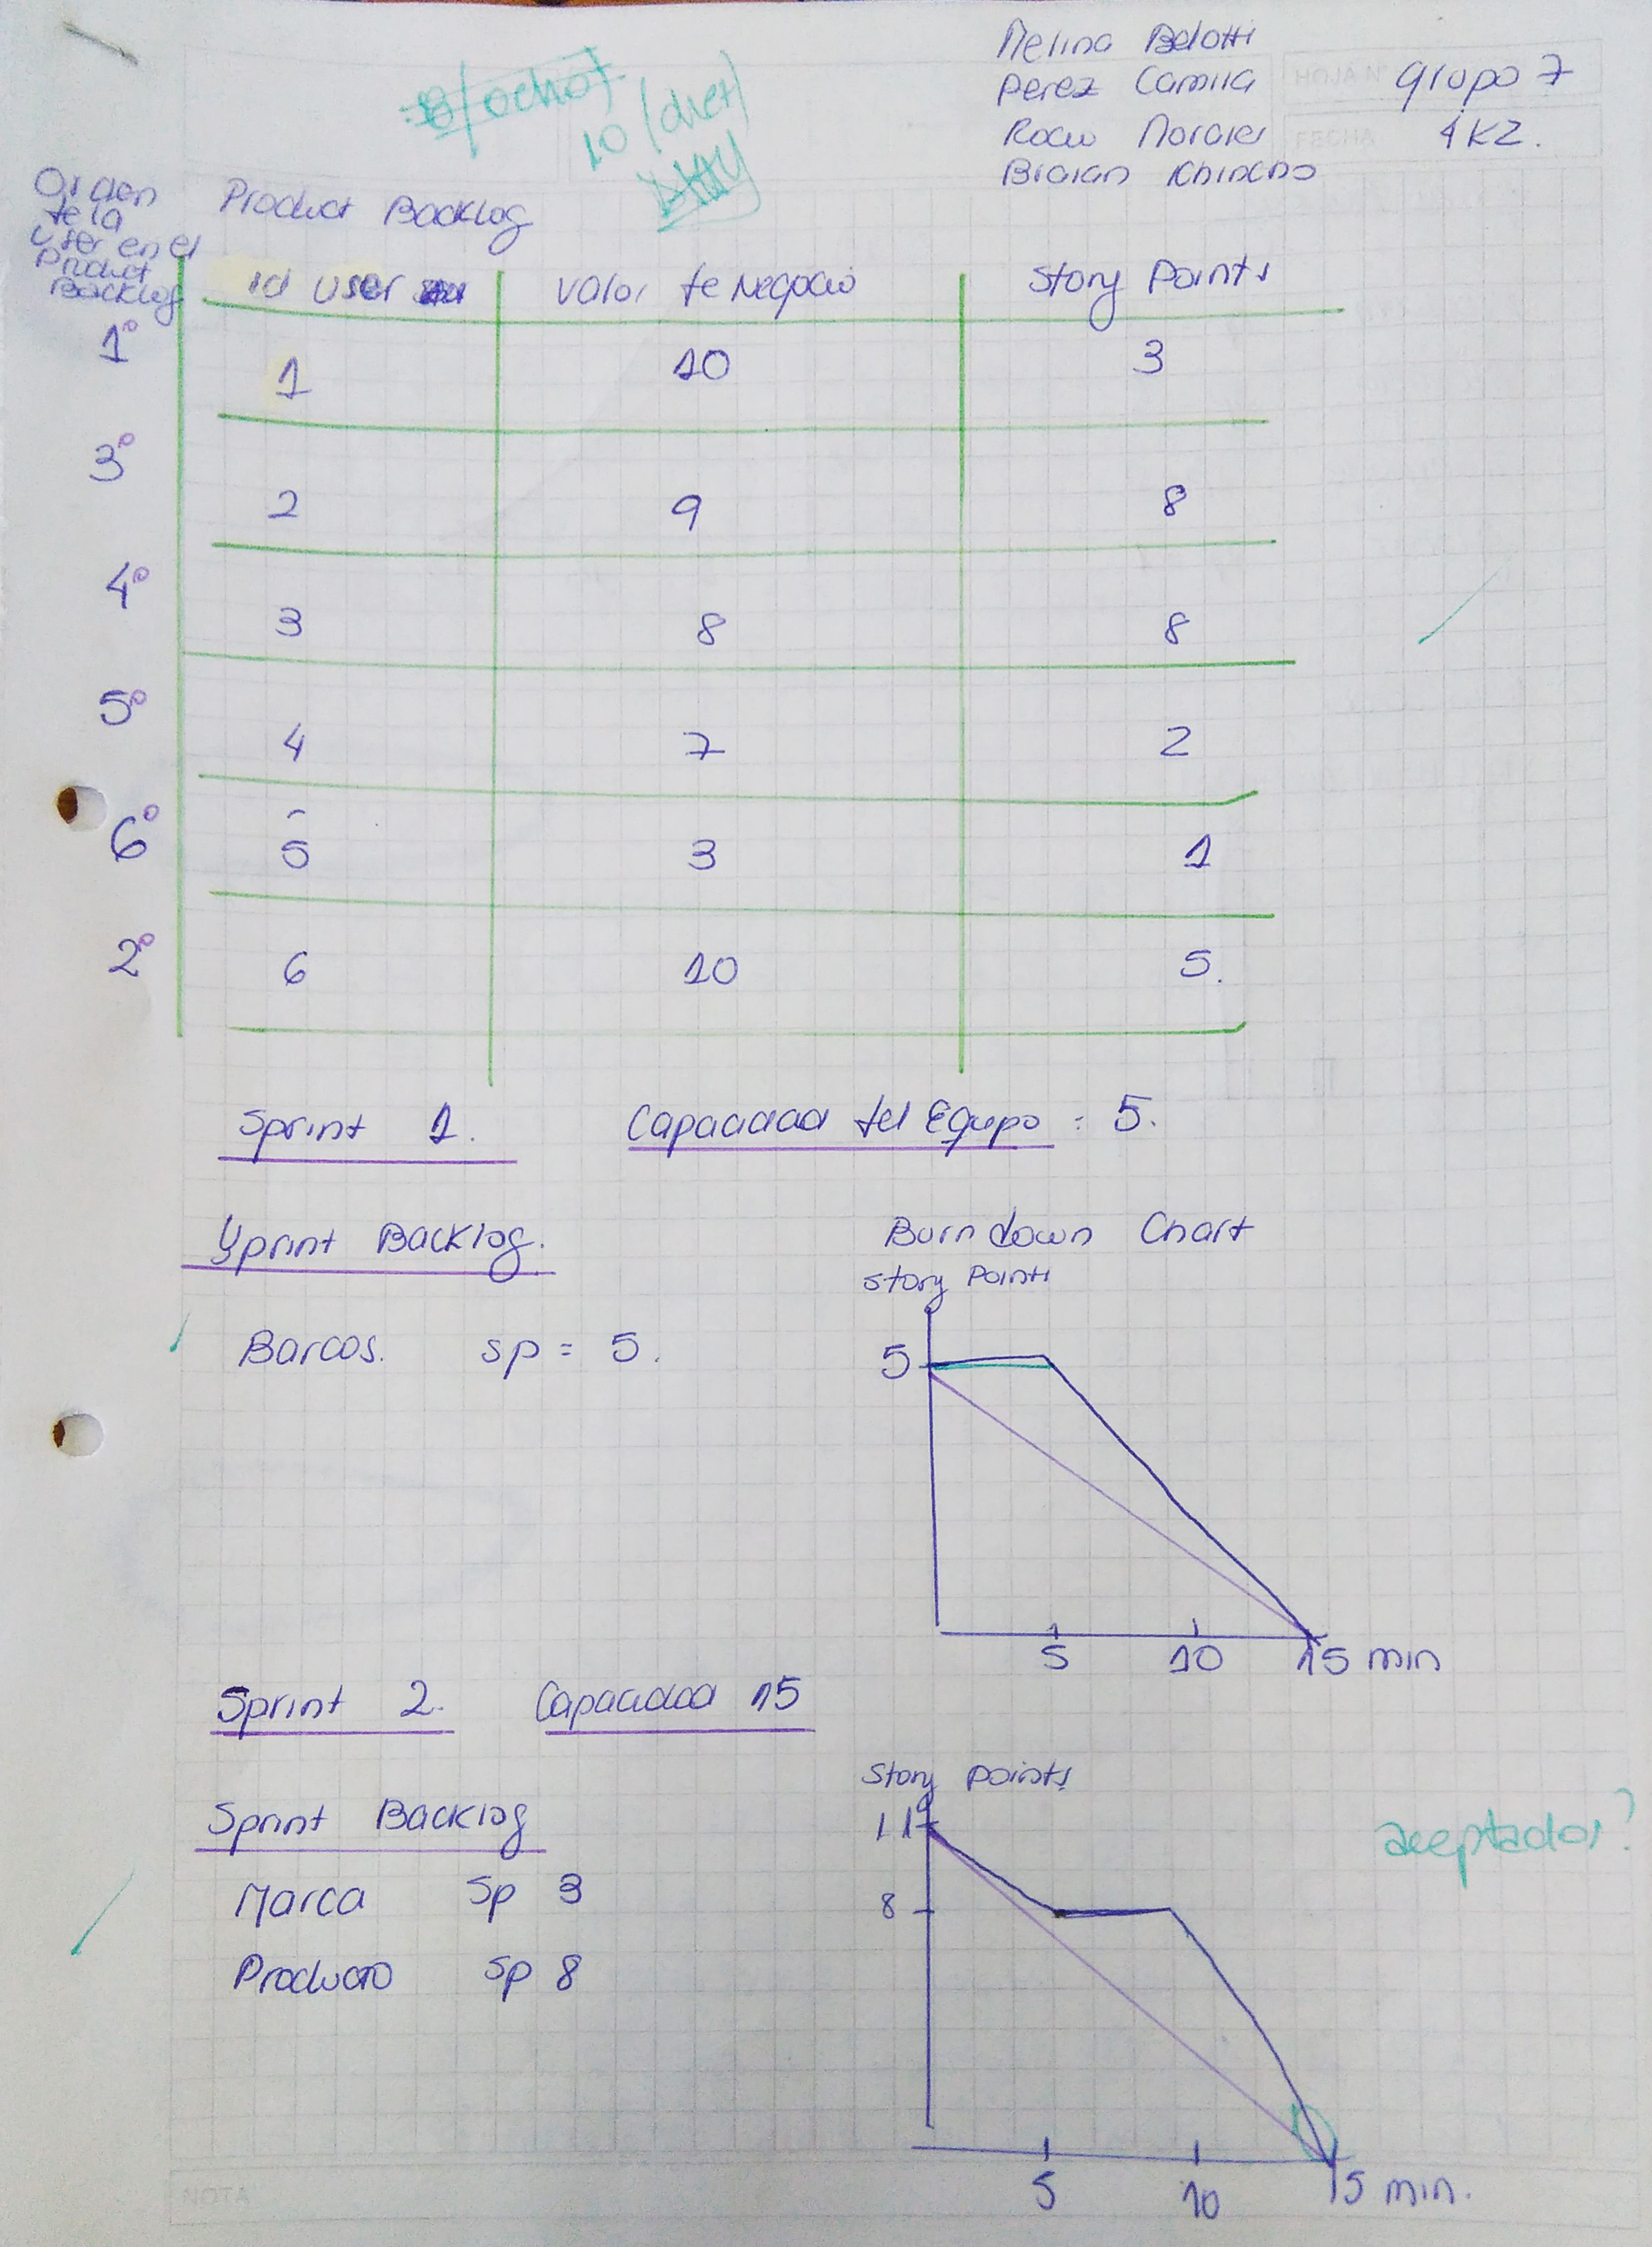 Melina Belotti
Perez Camila grupo 7
Rocio Morales 4K2.
Braian Chincho
8 (ocho)
10 (diez)
Orden
de la
User en el
Product
Backlog
Product Backlog
Id User Valor de Negocio Story Points
1° 1 10 3
3° 2 9 8
4° 3 8 8
5° 4 7 2
6° 5 3 1
2° 6 10 5.
Sprint 1. Capacidad del Equipo : 5.
Sprint Backlog.
Barcos. sp = 5.
Burn down Chart
Story Points
5
5 10 15 min
Sprint 2. Capacidad 15
Sprint Backlog
Marca Sp 3
Producto Sp 8
Story points
11
8
5 10 15 min.
aceptados?
HOJA N°
FECHA
NOTA